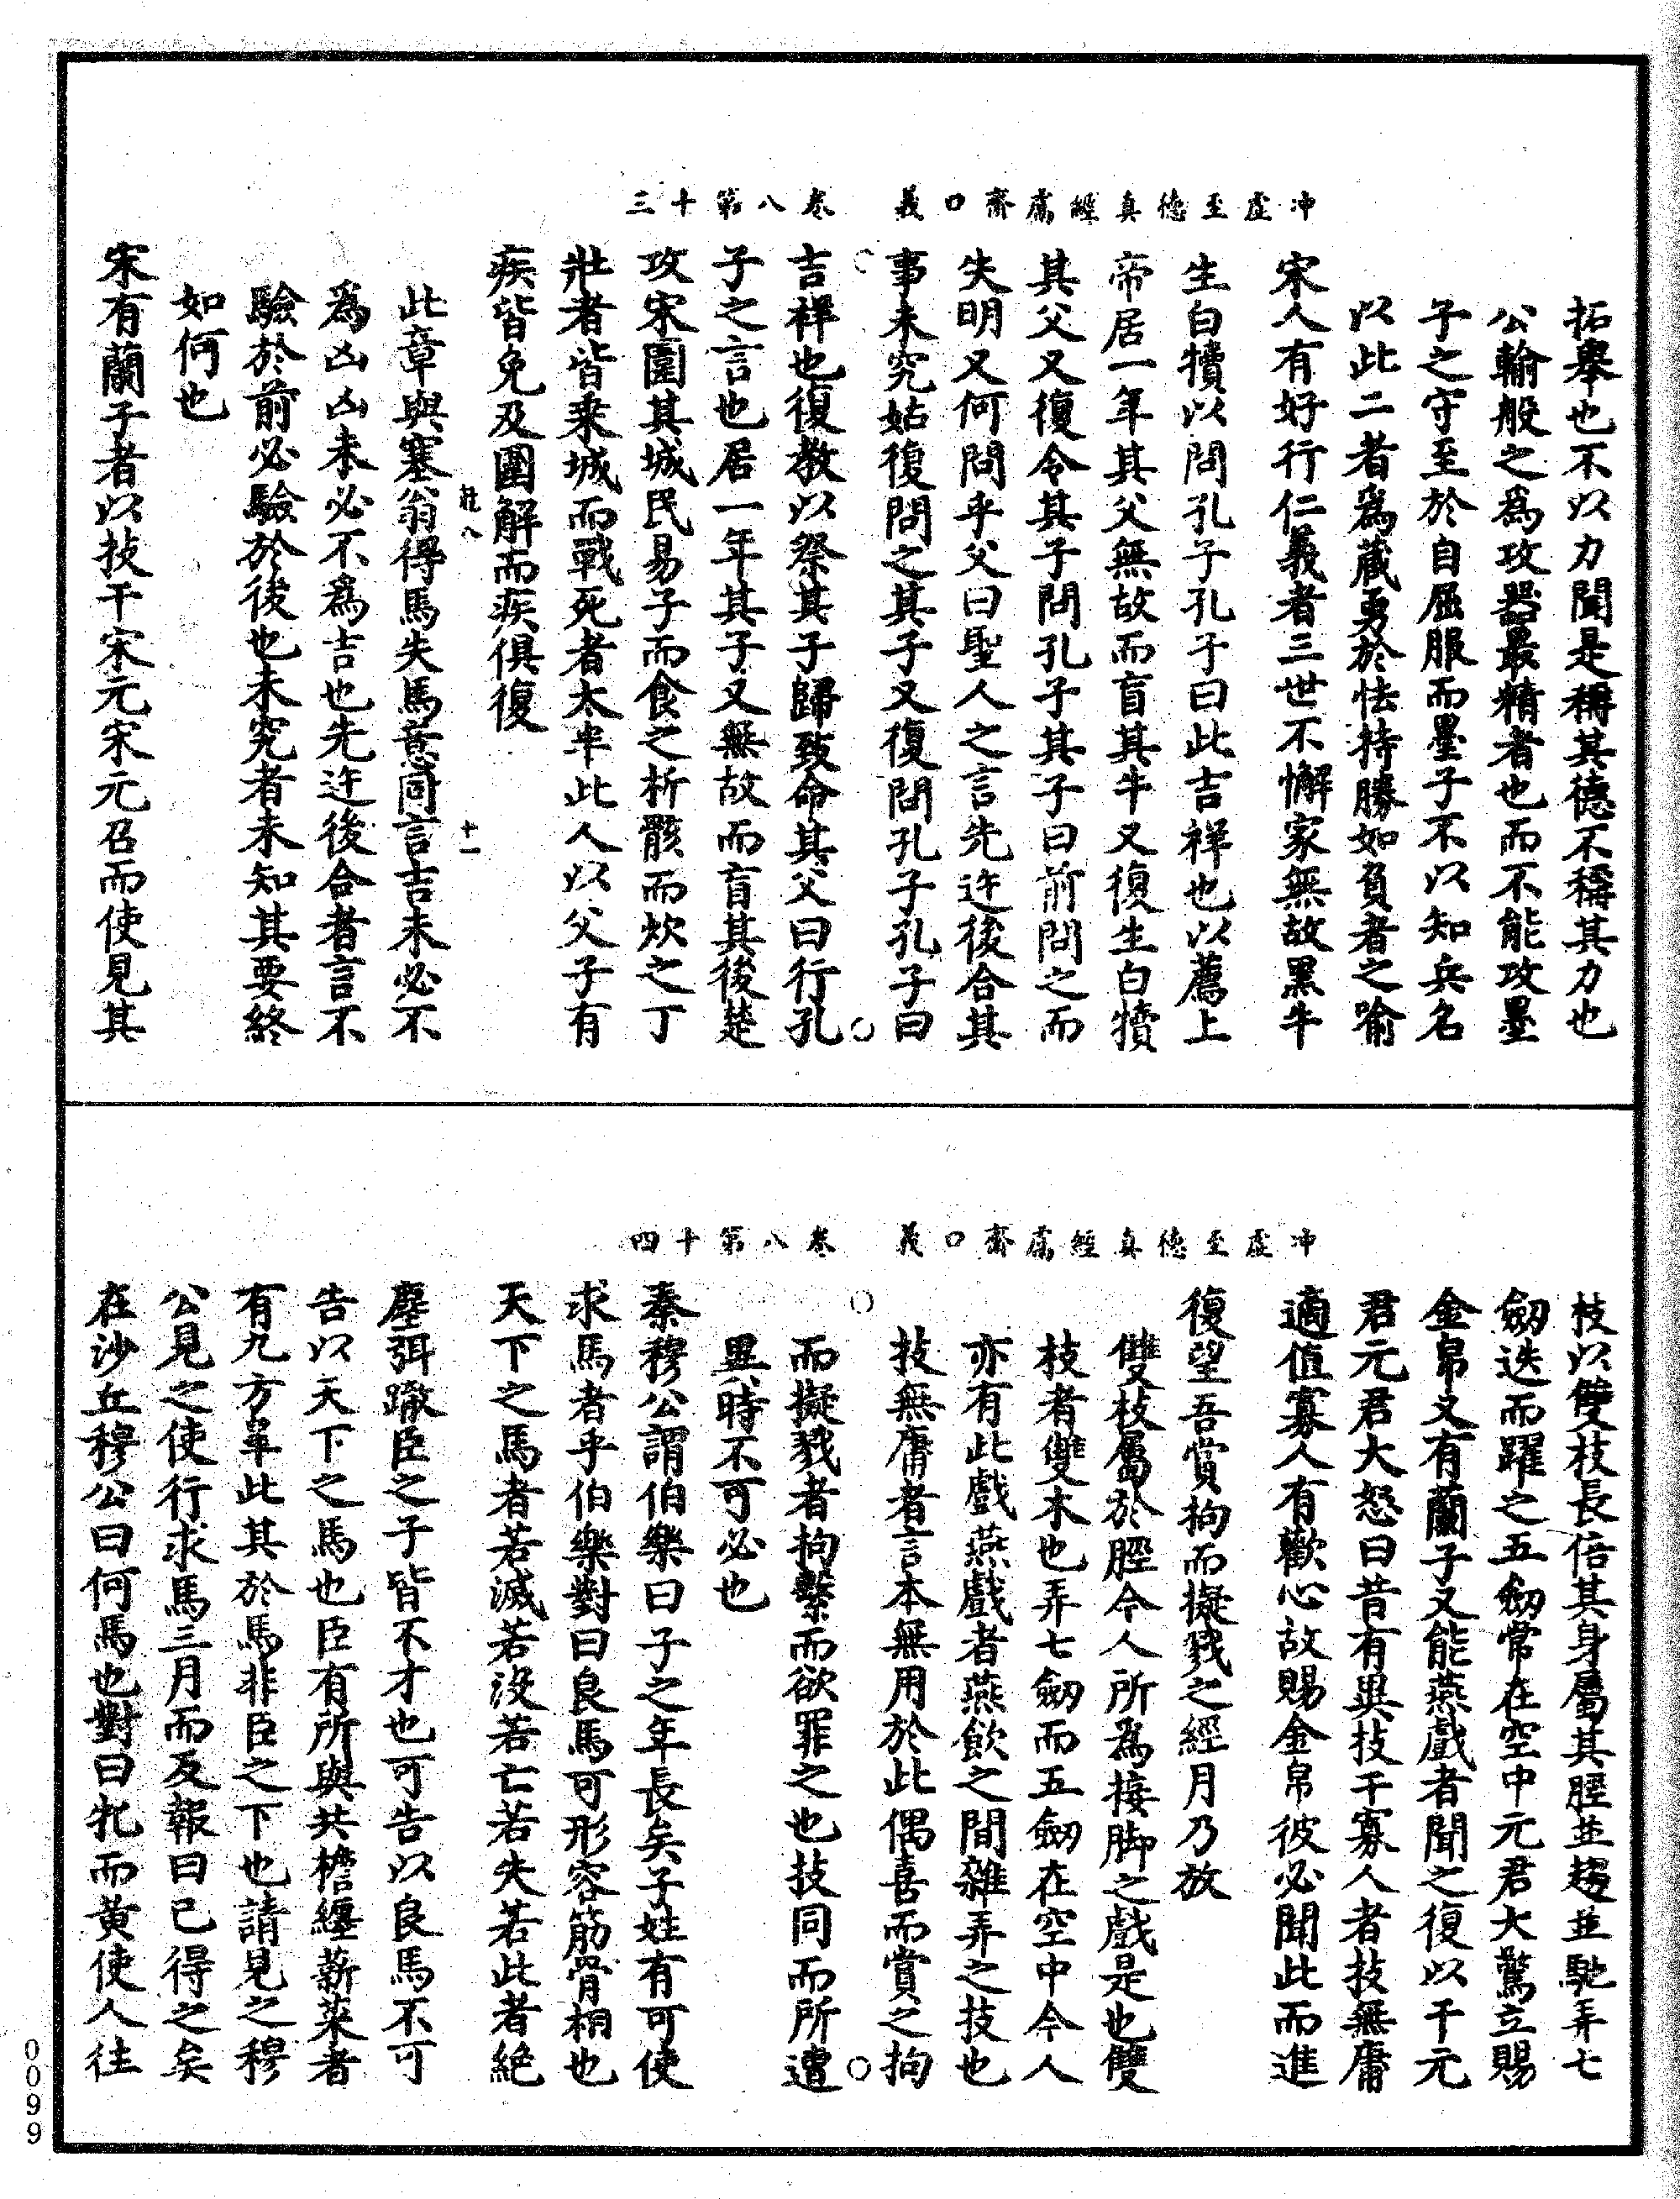 冲虛至德真經鬳齋口義　卷八第十三
拓舉也不以力聞是稱其德不稱其力也
公輸般之爲攻器最精者也而不能攻墨
子之守至於自屈服而墨子不以知兵名
以此二者爲藏勇於怯持勝如負者之喻
宋人有好行仁義者三世不懈家無故黑牛
生白犢以問孔子孔子曰此吉祥也以薦上
帝居一年其父無故而盲其牛又復生白犢
其父又復令其子問孔子其子曰前問之而
失明又何問乎父曰聖人之言先迕後合其
事未究姑復問之其子又復問孔子孔子曰
吉祥也復教以祭其子歸致命其父曰行孔
子之言也居一年其子又無故而盲其後楚
攻宋圍其城民易子而食之析骸而炊之丁
壯者皆乘城而戰死者太半此人以父子有
疾皆免及圍解而疾俱復
 八　十一
此章與塞翁得馬失馬意同言吉未必不
爲凶凶未必不爲吉也先迕後合者言不
驗於前必驗於後也未究者未知其要終
如何也
宋有蘭子者以技干宋元宋元召而使見其
冲虛至德真經鬳齋口義　卷八第十四
枝以雙枝長倍其身屬其脛並趨並馳弄七
劒迭而躍之五劒常在空中元君大驚立賜
金帛又有蘭子又能燕戲者聞之復以干元
君元君大怒曰昔有異技干寡人者技無庸
適值寡人有歡心故賜金帛彼必聞此而進
復望吾賞拘而擬戮之經月乃放
雙枝屬於脛今人所爲接脚之戲是也雙
枝者雙木也弄七劒而五劒在空中今人
亦有此戲燕戲者燕飲之間雜弄之技也
技無庸者言本無用於此偶喜而賞之拘
而擬戮者拘繫而欲罪之也技同而所遭
異時不可必也
秦穆公謂伯樂曰子之年長矣子姓有可使
求馬者乎伯樂對曰良馬可形容筋骨相也
天下之馬者若滅若沒若亡若失若此者絕
塵弭躈臣之子皆不才也可告以良馬不可
告以天下之馬也臣有所與共檐纆薪菜者
有九方皐此其於馬非臣之下也請見之穆
公見之使行求馬三月而反報曰已得之矣
在沙丘穆公曰何馬也對曰牝而黃使人往
0099